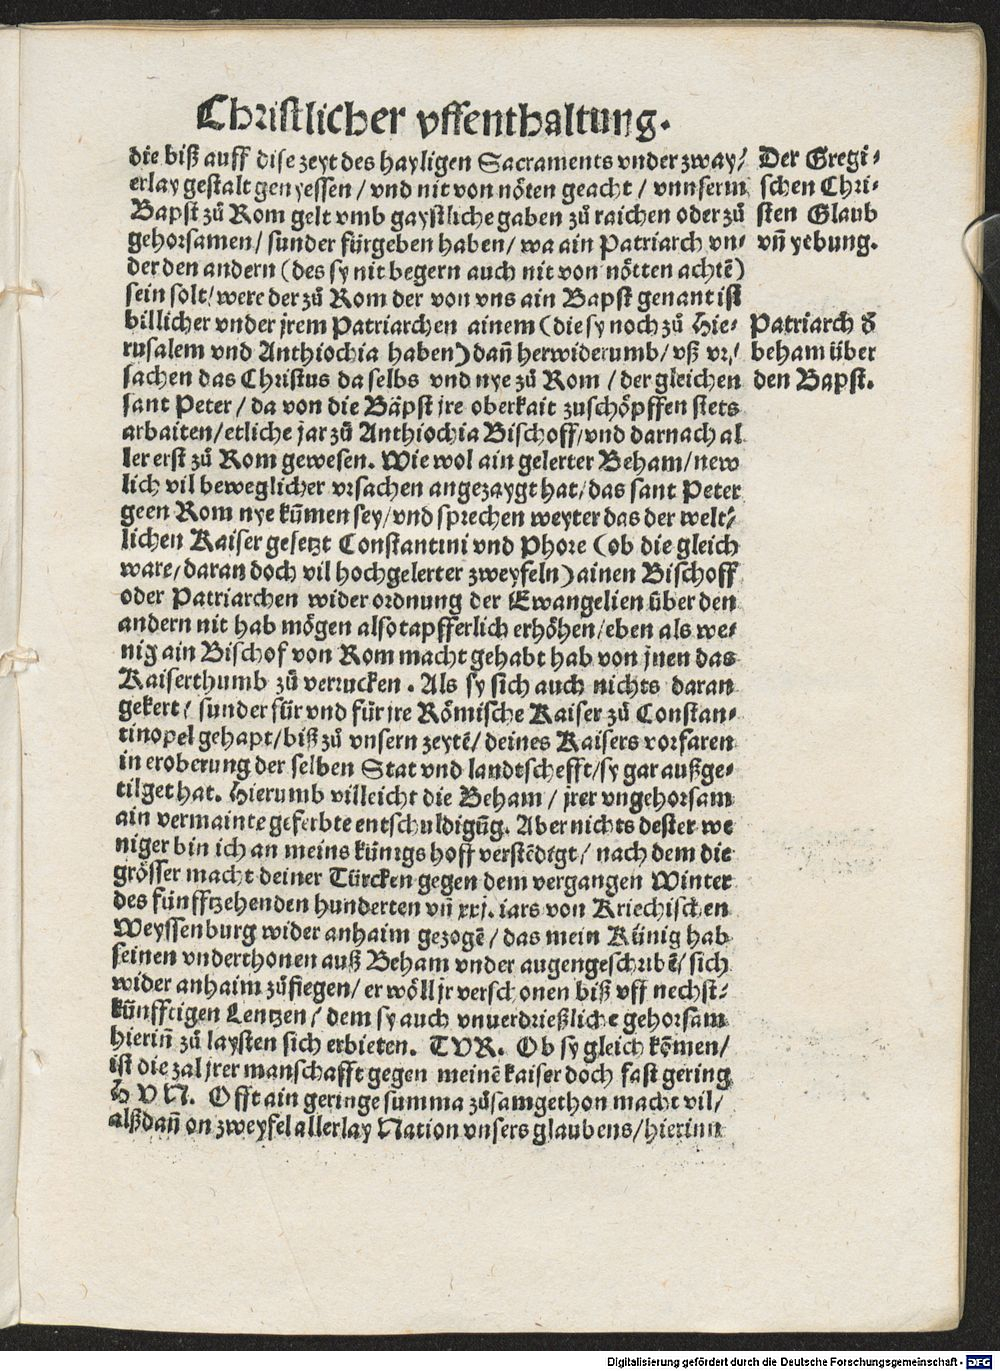 Christlicher vffenthaltung.
die biß auff dise zeyt des hayligen Sacraments vnder zway/
erlay gestalt genyessen / vnd nit von nöten geacht / vnnserm
Bapst zů Rom gelt vmb gaystliche gaben zů raichen oder zů
gehorsamen / sunder fürgeben haben / wa ain Patriarch vn⸗
der den andern (des sy nit begern auch nit von nötten achtē)
sein solt / were der zů Rom der von vns ain Bapst genant ist
billicher vnder jrem Patriarchen ainem (die sy noch zů Hie⸗
rusalem vnd Anthiochia haben) dañ herwiderumb / vß vr/
sachen das Christus da selbs vnd nye zů Rom / der gleichen
sant Peter / da von die Bäpst jre oberkait zuschöpffen stets
arbaiten / etliche jar zů Anthiochia Bischoff / vnd darnach al
ler erst zů Rom gewesen. Wie wol ain gelerter Beham / new
lich vil beweglicher vrsachen angezaygt hat / das sant Peter
geen Rom nye kūmen sey / vnd sprechen weyter das der welt⸗
lichen Kaiser gesetzt Constantini vnd Phore (ob die gleich
ware / daran doch vil hochgelerter zweyfeln) ainen Bischoff
oder Patriarchen wider ordnung der Ewangelien über den
andern nit hab mögen also tapfferlich erhöhen / eben als we⸗
nig ain Bischof von Rom macht gehabt hab von jnen das
Kaiserthumb zů verrucken. Als sy sich auch nichts daran
gekert / sunder für vnd für jre Römische Kaiser zů Constan⸗
tinopel gehapt / biß zů vnsern zeytē / deines Kaisers vorfaren
in eroberung der selben Stat vnd landtschefft / sy gar außge⸗
tilget hat. Hierumb villeicht die Beham / jrer vngehorsam
ain vermainte geferbte entschuldigūg. Aber nichts dester we
niger bin ich an meins künigs hoff verstēdigt / nach dem die
grösser macht deiner Türcken gegen dem vergangen Winter
des fünfftzehenden hunderten vñ xxj. iars von Kriechischen
Weyssenburg wider anhaim gezogē / das mein Künig hab
seinen vnderthonen auß Beham vnder augen geschribē / sich
wider anhaim zůfiegen / er wöll jr verschonen biß vff nechst⸗
künfftigen Lentzen / dem sy auch vnuerdrießliche gehorsam
hieriñ zů laysten sich erbieten. TVR. Ob sy gleich kōmen /
ist die zal jrer manschafft gegen meinē kaiser doch fast gering
HVN. Offt ain geringe summa zůsamgethon macht vil /
alßdañ on zweyfel allerlay Nation vnsers glaubens / hierinn
Der Gregi⸗
schen Chri⸗
sten Glaub
vñ yebung.
Patriarch ď
beham über
den Bapst.
Digitalisierung gefördert durch die Deutsche Forschungsgemeinschaft - DFG